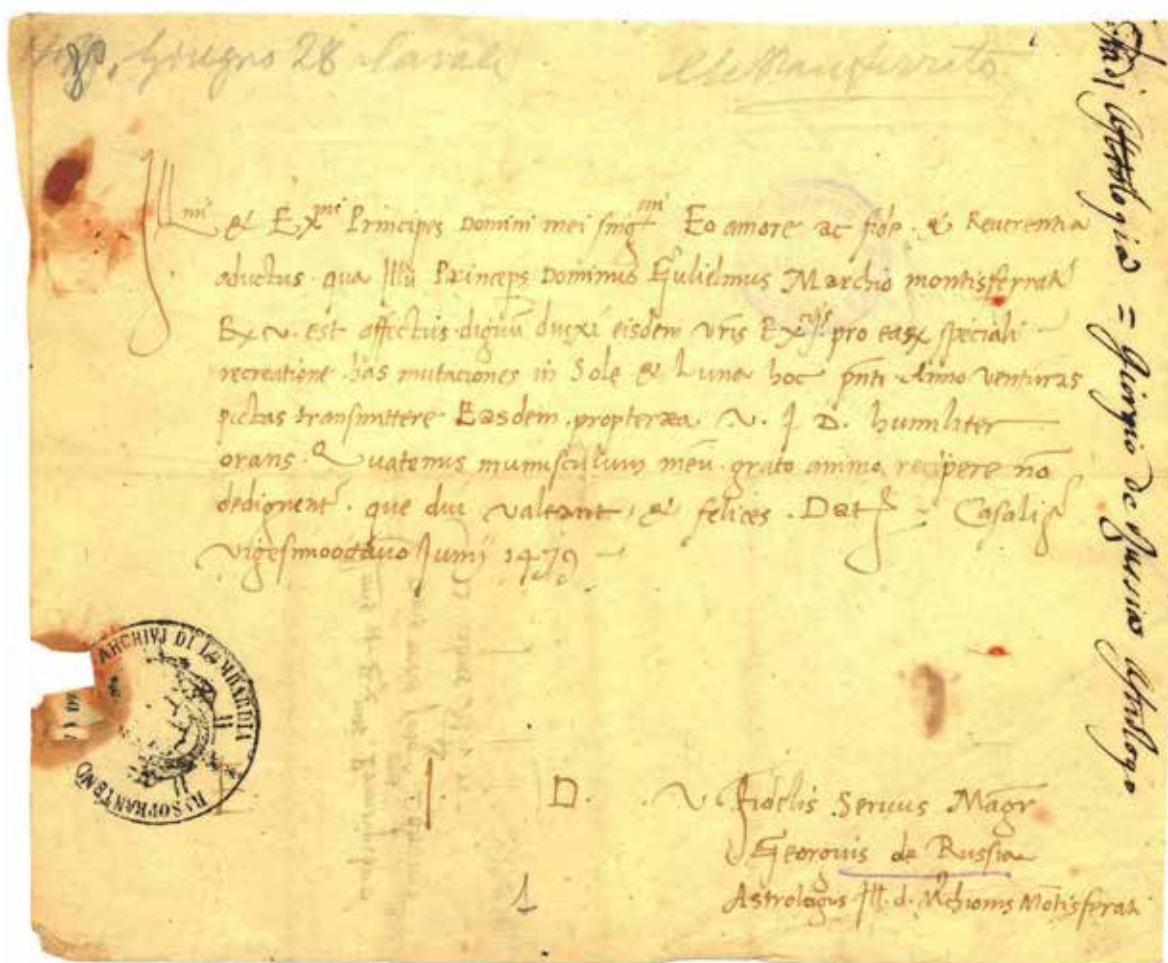 Giugno 28 Casale
Ill mi & Ex mi Principes Domini mei sing mi Eo amore ac fide & Reverentia
aductus qua Illu Princeps Dominus Gulielmus Marchio montisferrat
Ex. v. est affectus dignu duxi eisdem vris Ex tijs pro eaȝ speciali
recreatione has mutaciones in Sole & Luna hoc pnti Anno venturas
pictas transmittere Easdem propterea V. I. D. humiliter
orans Quatenus munusculum meu grato animo recipere no
dedignent que diu valeant & felices. Dat Casalis
vigesimooctavo Junij 1479
ARCHIVJ DI LOMBARDIA
I. D. V. Fidelis Servus Magr
Georgius de Russia
Astrologus Ill. d. Mchionis Motisferati
1
Astrologia = Giorgio de Russia Astrologo